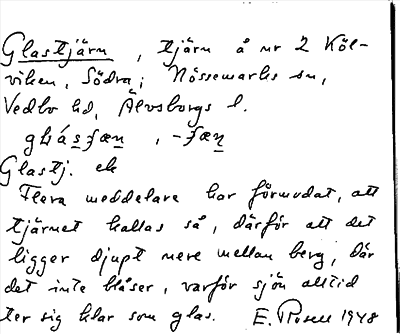 Glastjärn, tjärn å nr 2 Köl-
viken, Södra; Nössemarks sn,
Vedbo hd, Älvsborgs l.
Glastj. ek
Flera meddelare har förmodat, att
tjärnet kallas så, därför att det
ligger djupt nere mellan berg, där
det inte blåser, varför sjön alltid
ter sig klar som glas. E. Rosell 1948